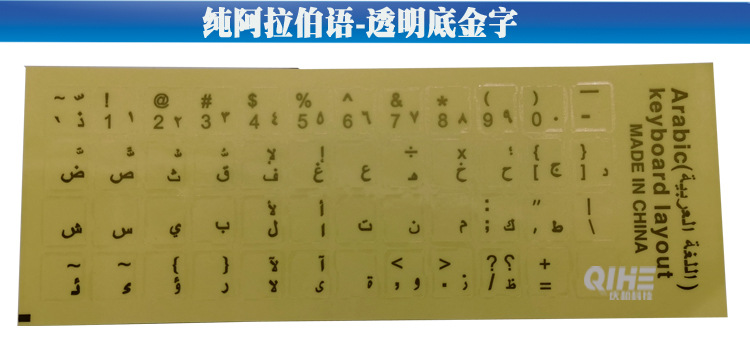 纯阿拉伯语-透明底金字
~ ّ ! @ # $ % ^ & * ( ) _
ذ 1 ١ 2 ٢ 3 ٣ 4 ٤ 5 ٥ 6 ٦ 7 ٧ 8 ٨ 9 ٩ 0 ٠ -
لإ إ ÷ x ؛ { }
ض ص ث ق ف غ ع ه خ ح [ ج ] د
لأ أ : " |
ش س ي ب ل ا ت ن م ; ك ط \
~ ~ { } لآ آ < > ? ؟ +
ئ ء ؤ ر لا ى ة , و . ز / ظ =
Arabic(اللغة العربية)
keyboard layout
MADE IN CHINA
QIHE
伙和科技